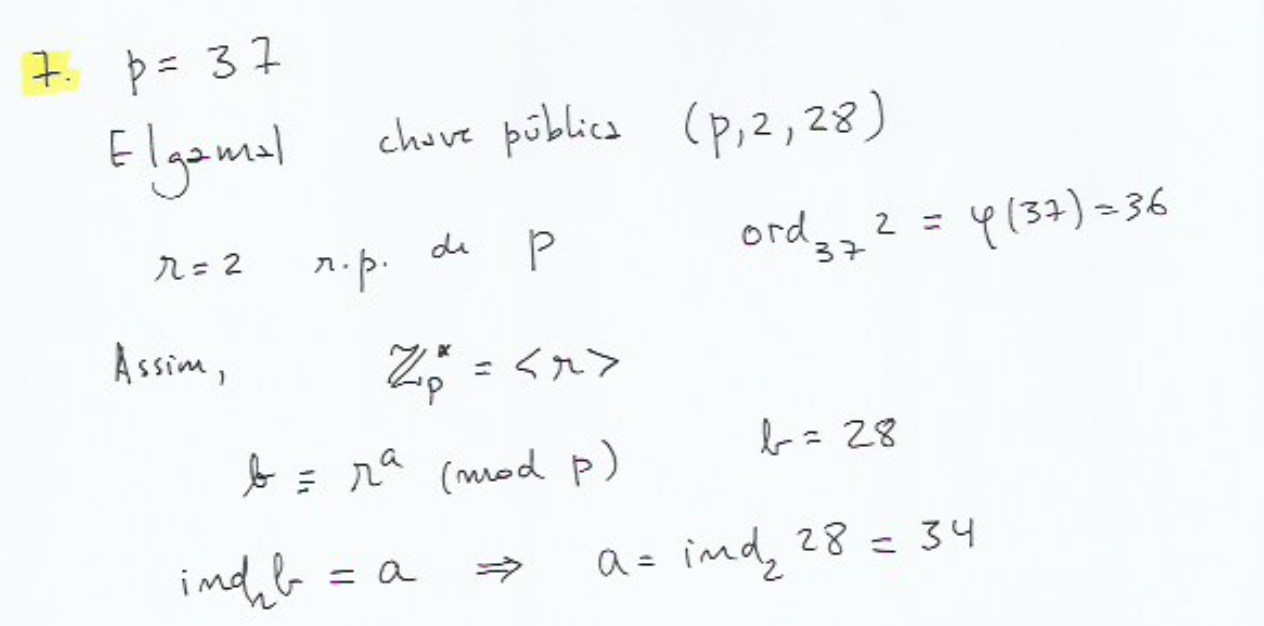 7. p = 37
Elgamal chave pública (p, 2, 28)
r = 2 r.p. de p ord₃₇ 2 = φ(37) = 36
Assim, ℤₚ* = <r>
b ≡ rᵃ (mod p) b = 28
indᵣ b = a ⇒ a = ind₂ 28 = 34